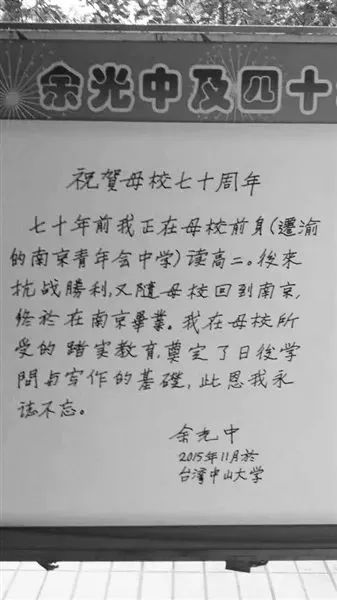 余光中及四十
祝賀母校七十周年
七十年前我正在母校前身(遷渝
的南京青年会中学)读高二。後來
抗战勝利,又随母校回到南京,
终於在南京畢業。我在母校所
受的踏实教育,奠定了日後学
問与写作的基礎,此恩我永
誌不忘。
余光中
2015年11月於
台湾中山大学